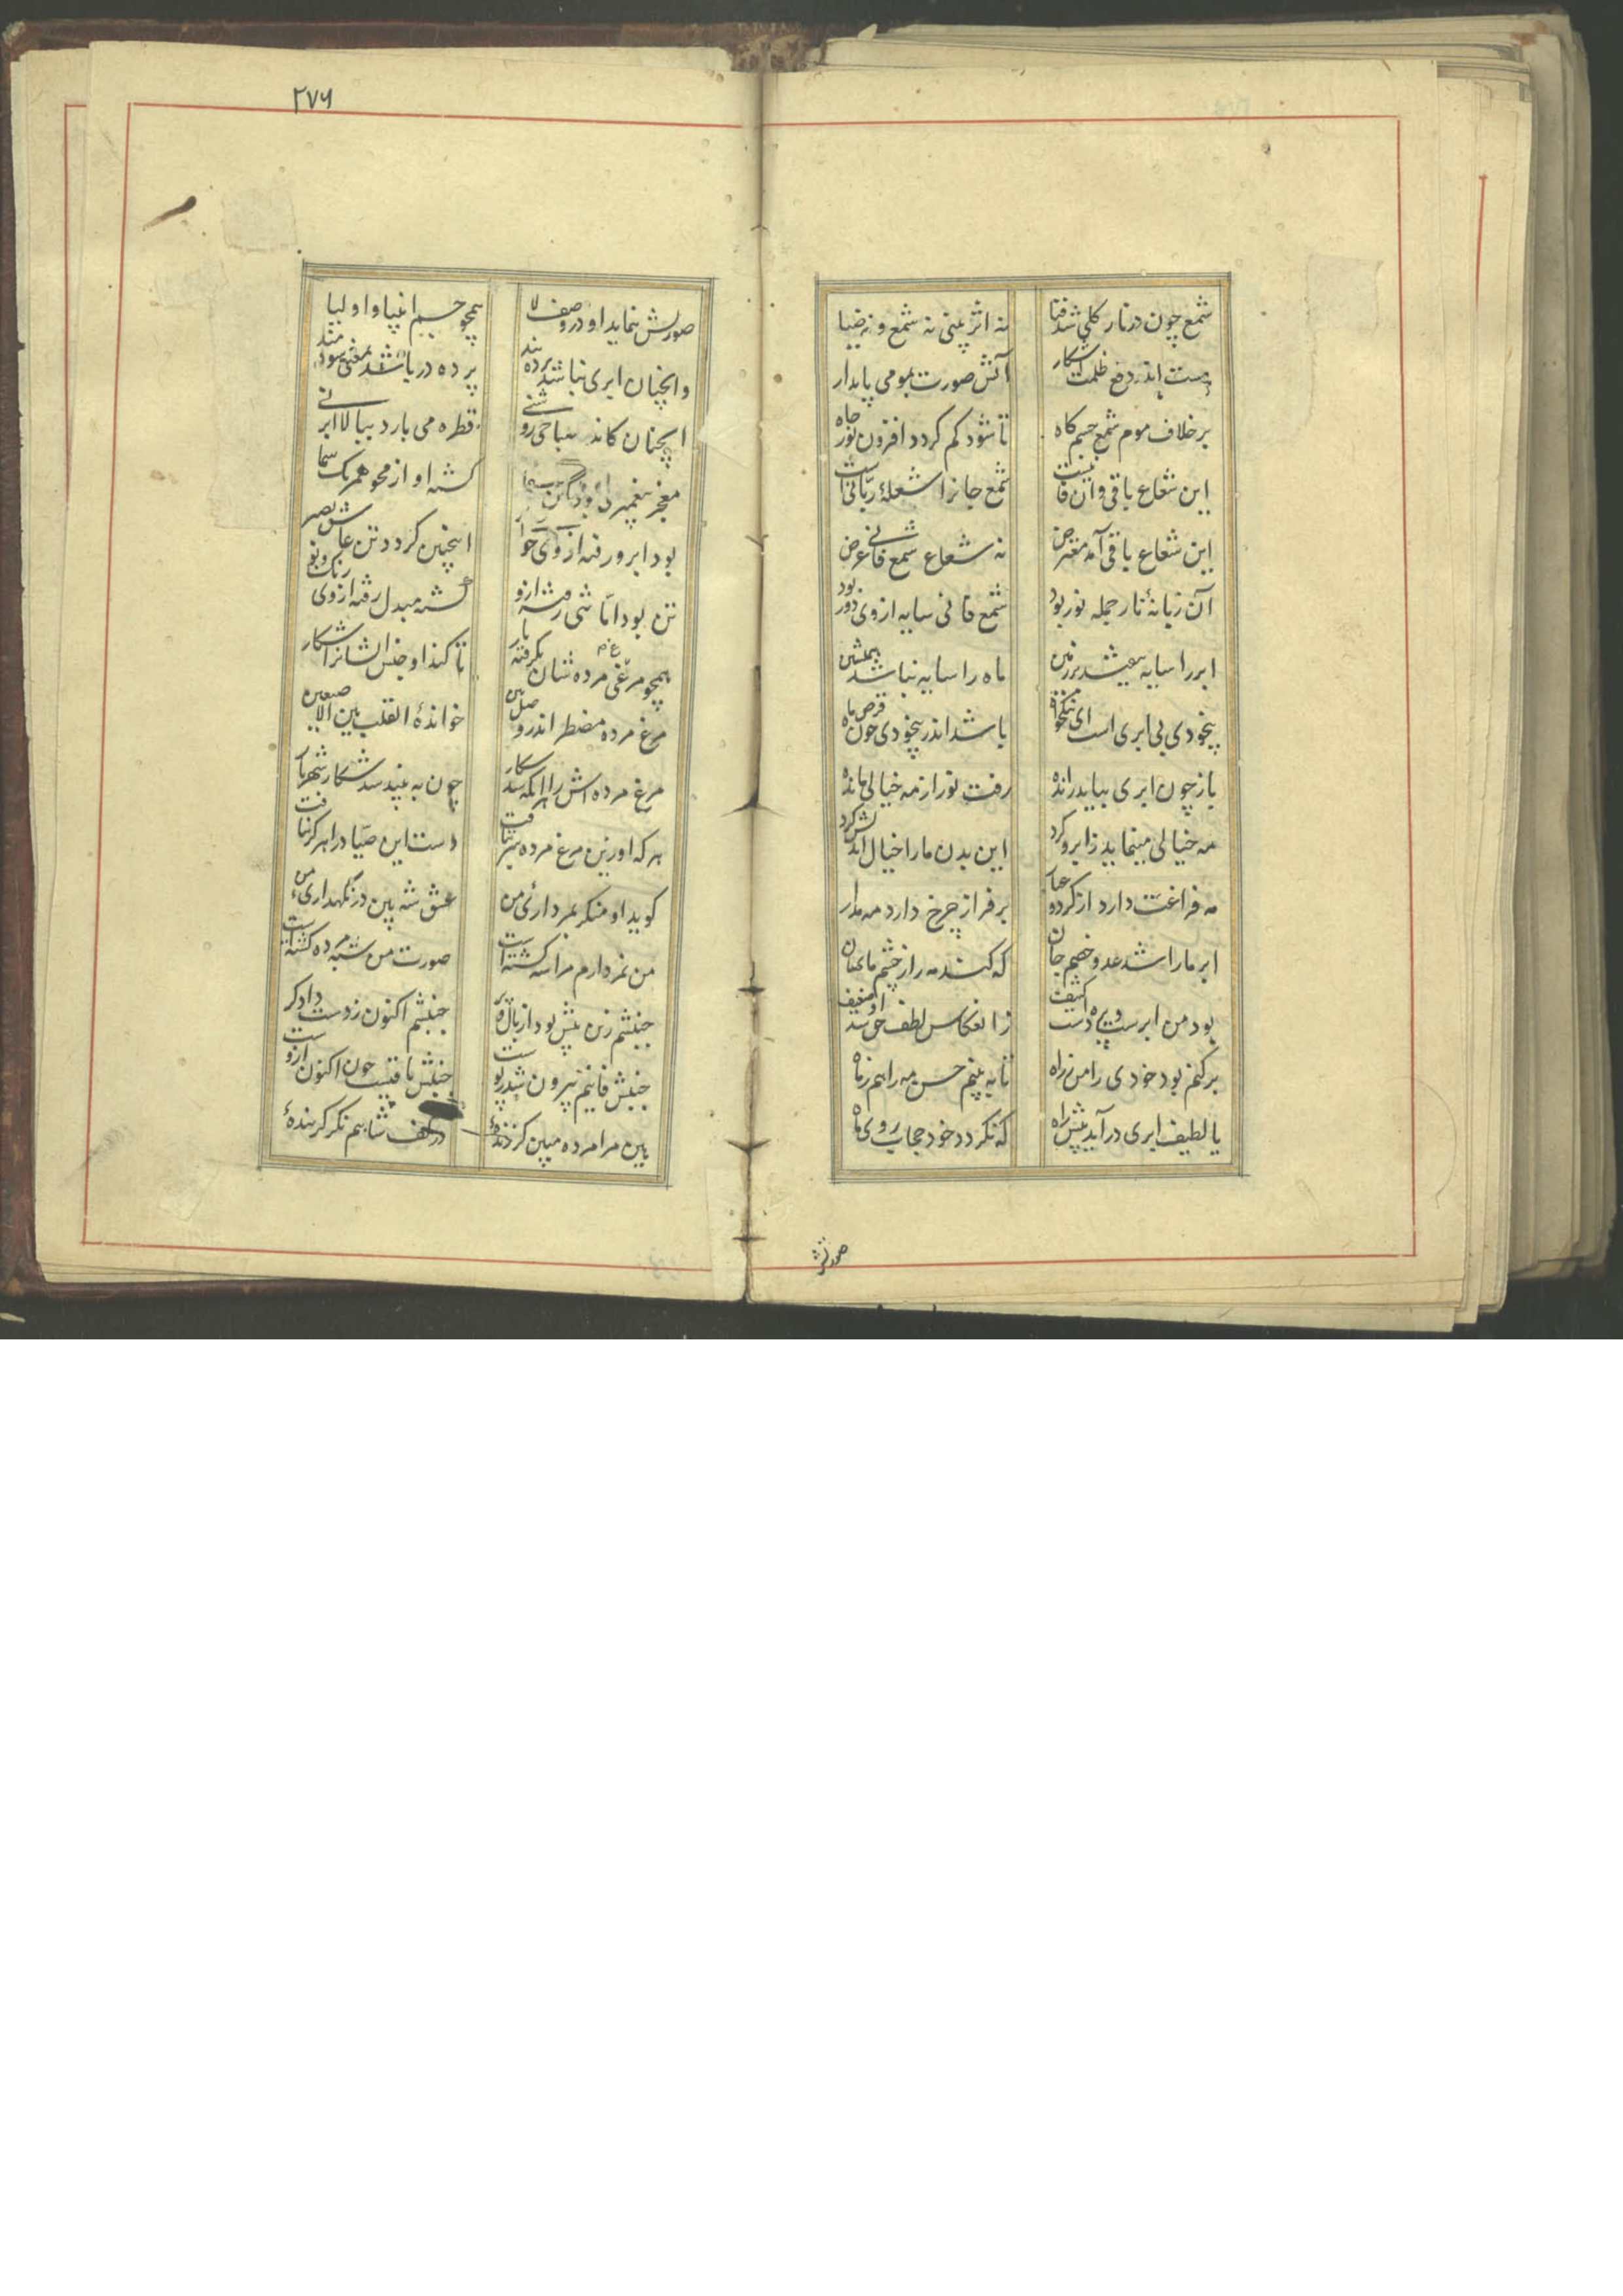 شمع چون در نار کلی شد فنا نه اثر بینی نه شمع و نه ضیا
هست اندر دفع ظلمت آشکار آتش صورت بمومی پایدار
برخلاف موم شمع جسم کاه تا شود کم کردد افزون نور جاه
این شعاع باقی و آن فانیست شمع جانرا شعلهٔ ربانیست
این شعاع باقی آمد مفترض نه شعاع شمع فانی عرض
آن زبانهٔ نار جمله نور بود شمع فانی سایه از وی دور بود
ابر را سایه بیفتد بر زمین ماه را سایه نباشد همنشین
بیخودی بی ابری است ای نیکخواه باشد اندر بیخودی چون قرص ماه
باز چون ابری بیاید رانده رفت نور از مه خیالی مانده
مه خیالی مینماید ز ابر و کرد این بدن ما را خیال اندیش کرد
مه فراغت دارد از کرد و غبار بر فراز چرخ دارد مه مدار
ابر ما را شد عدو و خصم جان که کند مه را ز چشم ما نهان
بود من ابرست و پرده‌ست کثیف ز انعکاس لطف حق شد او لطیف
برکنم بود خودی را من ز راه تا به بینم حسن مه را هم ز ماه
یا لطیف ابری در آید پیش راه که نکردد خود حجاب روی ماه
صورتش
۲۷۶
صورتش بنماید او در وصف لا همچو جسم انبیا و اولیا
وانچنان ابری نباشد پرده بند پرده در باشد بمعنی سودمند
انچنان کاندر صباح روشنی قطره می بارد ببالا ابر نی
معجز پیغمبری بود آن سقا کشته او از محو همرنک سما
بود ابر و رفته از وی خوی ابر اینچنین کردد تن عاشق بصبر
تن بود اما تنی رفته ازو کشته مبدل رفته از وی رنک و بو
همچو مرغی مرده شان بکرفته یار تا کند او جنس ایشانرا شکار
مرغ مرده مضطر اندر وصل و بین خواندهٔ القلب بین الاصبعین
مرغ مرده اش را هر آنکه شد شکار چون به بیند شد شکار شهریار
هر که او زین مرغ مرده سر بتافت دست این صیاد را هرکز نیافت
کوید او منکر بمرداری من عشق شه بین در نکهداری من
من نه مردارم مرا شه کشته است صورت من شبه مرده کشته است
جنبشم زین پیش بود از بال و پر جنبشم اکنون ز دست دادکر
جنبش فانیم بیرون شد ز پوست جنبشم باقیست چون اکنون ازوست
هین مرا مرده مبین کر زندهٔ در کف شاهم نکر کر بندهٔ